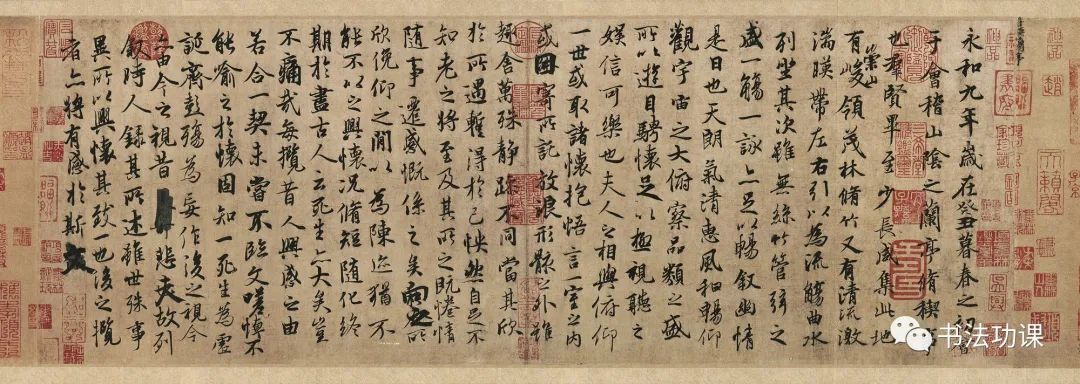 永和九年歲在癸丑暮春之初會
于會稽山陰之蘭亭脩稧事
也羣賢畢至少長咸集此地
有崇山峻領茂林脩竹又有清流激
湍暎帶左右引以為流觴曲水
列坐其次雖無絲竹管弦之
盛一觴一詠亦足以暢叙幽情
是日也天朗氣清惠風和暢仰
觀宇宙之大俯察品類之盛
所以遊目騁懷足以極視聽之
娛信可樂也夫人之相與俯仰
一世或取諸懷抱悟言一室之內
或因寄所託放浪形骸之外雖
趣舍萬殊靜躁不同當其欣
於所遇暫得於己怏然自足不
知老之將至及其所之既惓情
隨事遷感慨係之矣向之所
欣俛仰之間以為陳迹猶不
能不以之興懷況脩短隨化終
期於盡古人云死生亦大矣豈
不痛哉每攬昔人興感之由
若合一契未嘗不臨文嗟悼不
能喻之於懷固知一死生為虛
誕齊彭殤為妄作後之視今
亦由今之視昔悲夫故列
叙時人錄其所述雖世殊事
異所以興懷其致一也後之攬
者亦將有感於斯文
书法功课